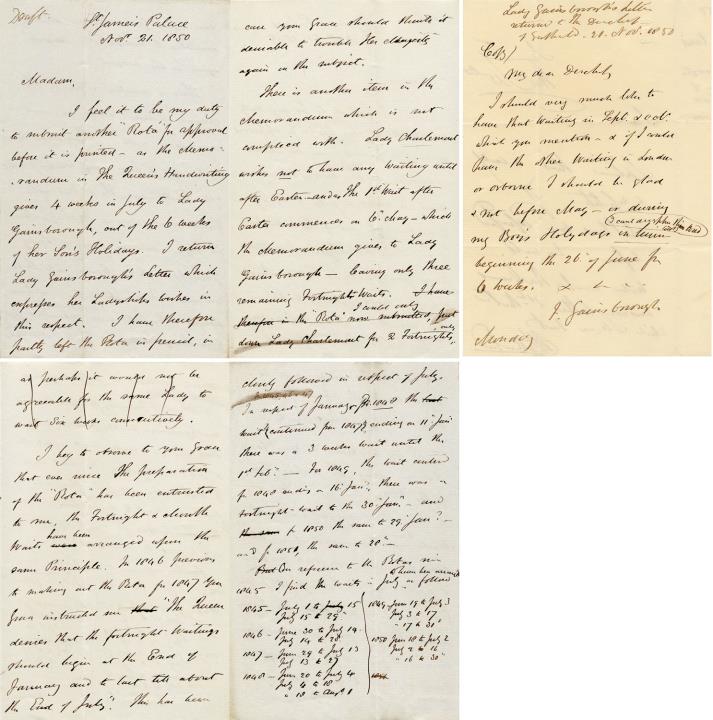 Draft.
St. James's Palace
Nov. 21. 1850
Madam,
I feel it to be my duty
to submit another "Rota" for approval
before it is printed - as the Memo-
-randum in The Queen's Handwriting
gives 4 weeks in July to Lady
Gainsborough, out of the 6 weeks
of her Son's Holidays. I return
Lady Gainsborough's letter which
expresses her Ladyship's wishes in
this respect. I have therefore
partly left the Rota in pencil, in
case your Grace should think it
desirable to trouble Her Majesty
again on the subject.
There is another item in the
Memorandum which is not
complied with. Lady Charlemont
wishes not to have any Waiting until
after Easter - and The 1st Wait after
Easter commences on 6th May - which
the Memorandum gives to Lady
Gainsborough - leaving only three
remaining Fortnights Waits. I have
therefore in the "Rota" now submitted, put
I could only
down Lady Charlemont for 2 Fortnights,
only
as perhaps it would not be
agreeable for the same Lady to
wait Six weeks consecutively.
I beg to observe to your Grace
that ever since The preparation
of the "Rota" has been entrusted
to me, the Fortnight & double
have been
Waits were arranged upon the
same Principle. In 1846 previous
to making out the Rota for 1847 Your
Grace instructed me that "The Queen
desires that the fortnight Waitings
should begin at the End of
January and to last till about
the End of July". This has been
closely followed in respect of July.
In respect of January, for 1848 the last
wait (continued from 1847) ending on 11th Jany
there was a 3 weeks wait until the
1st Feby. - For 1849, the wait ended
for 1848 ending 16 Jany, there was a
fortnight wait to the 30 Jany. - and
the same for 1850 the same to 29 Jany -
and for 1851, the same to 28th -
And On reference to the Rotas since
1845 I find the waits in July as follows
1845 - July 1 to July 15
July 15 to 29
1846 - June 30 to July 14
July 14 to 28
1847 - June 29 to July 13
July 13 to 27
1848 - June 20 to July 4
July 4 to 18
" 18 to Augt 1
1849 June 19 to July 3
July 3 to 17
" 17 to 31
1850 June 18 to July 2
July 2 to 16
" 16 to 30
1851
Lady Gainsborough's letter
returned to the Duchess
of Sutherland. 21. Nov. 1850
(Copy)
My dear Duchess,
I should very much like to
have that Waiting in Septr. & Octr.
which you mention - & if I could
have the other Waiting in London
or Osborne I should be glad
& not before May - or during
my Boy's Holydays in June
beginning the 26 of June for
6 weeks. x x
J. Gainsborough
Monday